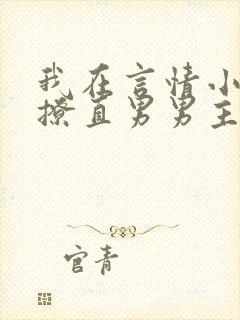 我在言情小
撩直男男主
官青